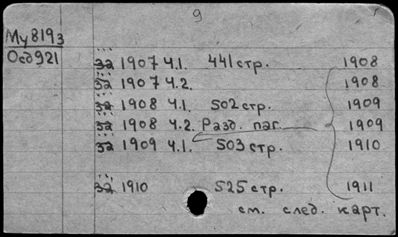 9
Му8193
Осд921
за 1907 ч.1. 441 стр. 1908
за 1907 ч.2. 1908
за 1908 ч.1. 502 стр. 1909
за 1908 ч.2. Разд. паг. 1909
за 1909 ч.1. 503 стр. 1910
за 1910 525 стр. 1911
см. след. карт.